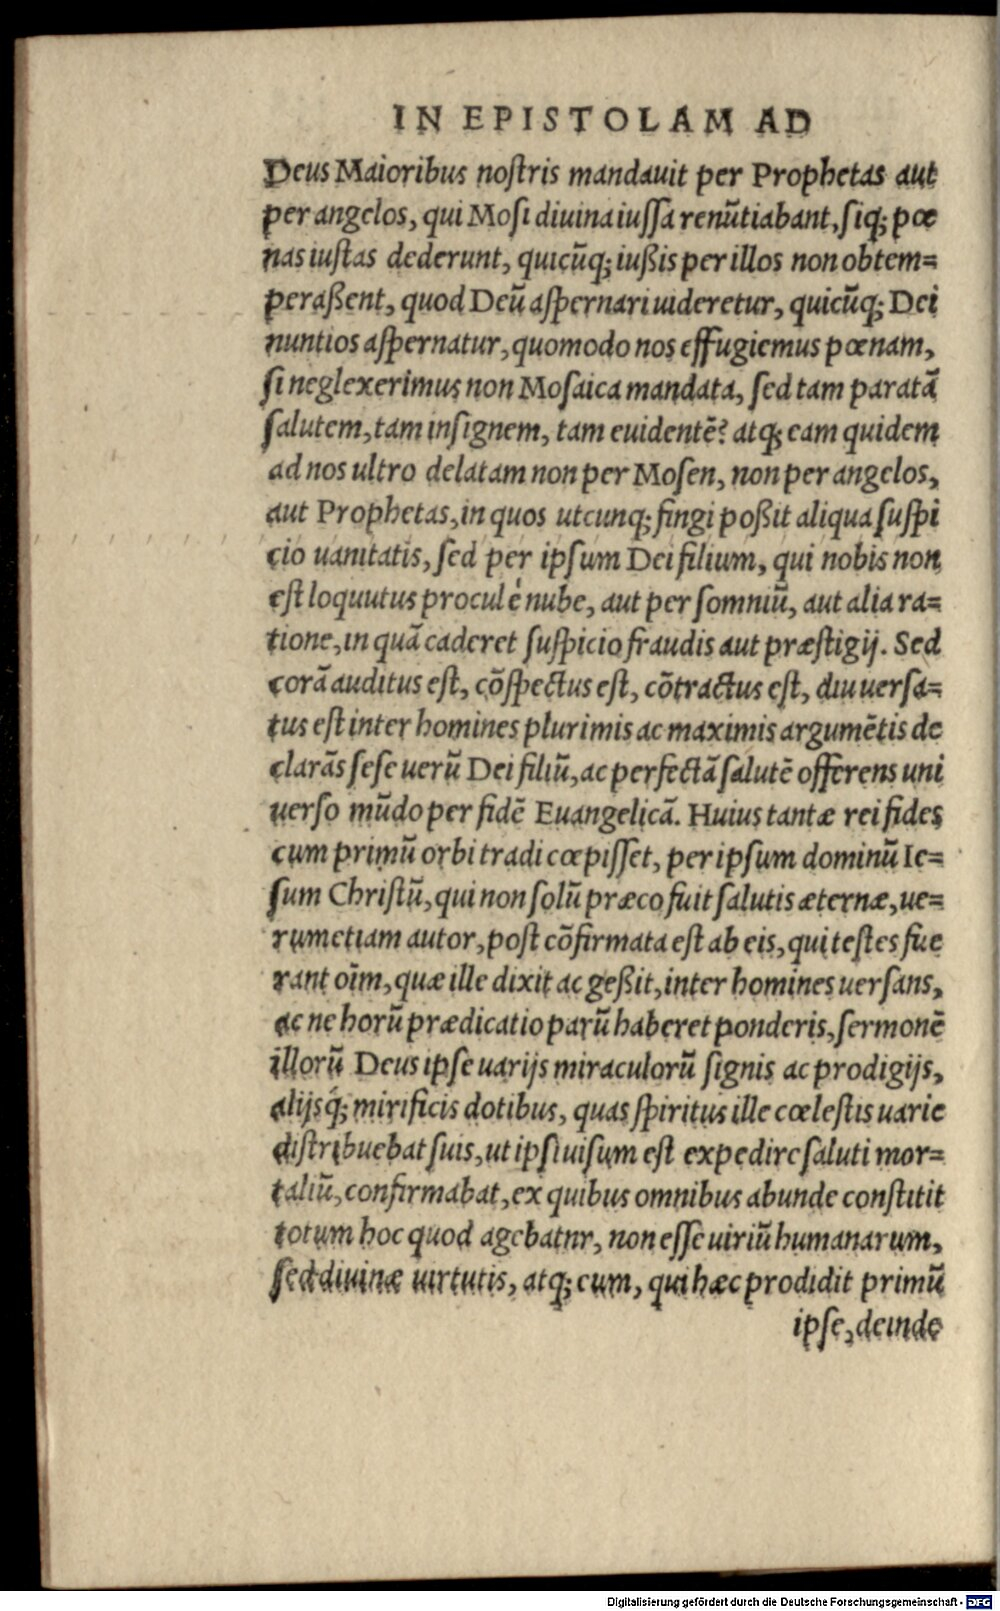 IN EPISTOLAM AD
Deus Maioribus noſtris mandauit per Prophetas aut
per angelos, qui Moſi diuina iuſſa renũtiabant, ſiq́; pœ
nas iuſtas dederunt, quicũq; iußis per illos non obtem=
peraßent, quod Deũ aſpernari uideretur, quicũq; Dei
nuntios aſpernatur, quomodo nos effugiemus pœnam,
ſi neglexerimus non Moſaica mandata, ſed tam paratã
ſalutem, tam inſignem, tam euidentẽ? atq; eam quidem
ad nos ultro delatam non per Moſen, non per angelos,
aut Prophetas, in quos utcunq; fingi poßit aliqua ſuſpi
cio uanitatis, ſed per ipſum Dei filium, qui nobis non
eſt loquutus procul è nube, aut per ſomniũ, aut alia ra=
tione, in quã caderet ſuſpicio fraudis aut præſtigij. Sed
corã auditus eſt, cõſpectus eſt, cõtractus eſt, diu uerſa=
tus eſt inter homines plurimis ac maximis argumẽtis de
clarãs ſeſe uerũ Dei filiũ, ac perfectã ſalutẽ offerens uni
uerſo mũdo per fidẽ Euangelicã. Huius tantæ rei fides
cum primũ orbi tradi cœpiſſet, per ipſum dominũ Ie=
ſum Chriſtũ, qui non ſolũ præco fuit ſalutis æternæ, ue=
rumetiam autor, poſt cõfirmata eſt ab eis, qui teſtes fue
rant oĩm, quæ ille dixit ac geßit, inter homines uerſans,
ac ne horũ prædicatio parũ haberet ponderis, ſermonẽ
illorũ Deus ipſe uarijs miraculorũ ſignis ac prodigijs,
alijsq́; mirificis dotibus, quas ſpiritus ille cœleſtis uarie
diſtribuebat ſuis, ut ipſi uiſum eſt expedire ſaluti mor=
taliũ, confirmabat, ex quibus omnibus abunde conſtitit
totum hoc quod agebatnr, non eſſe uiriũ humanarum,
ſed diuinæ uirtutis, atq; eum, qui hæc prodidit primũ
ipſe, deinde
Digitalisierung gefördert durch die Deutsche Forschungsgemeinschaft - DFG